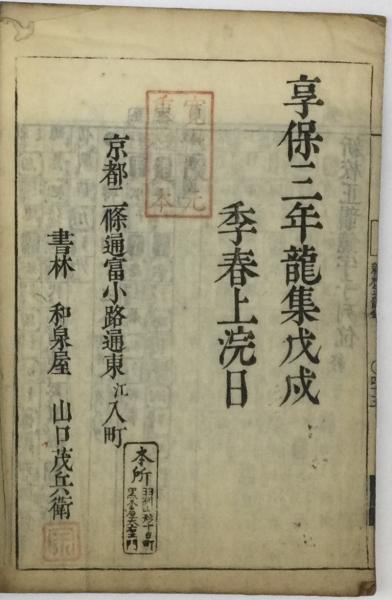 享保三年龍集戊戌
季春上浣日
京都二條通富小路通東江入町
書林 和泉屋 山口茂兵衛
本所
羽州山形十日町